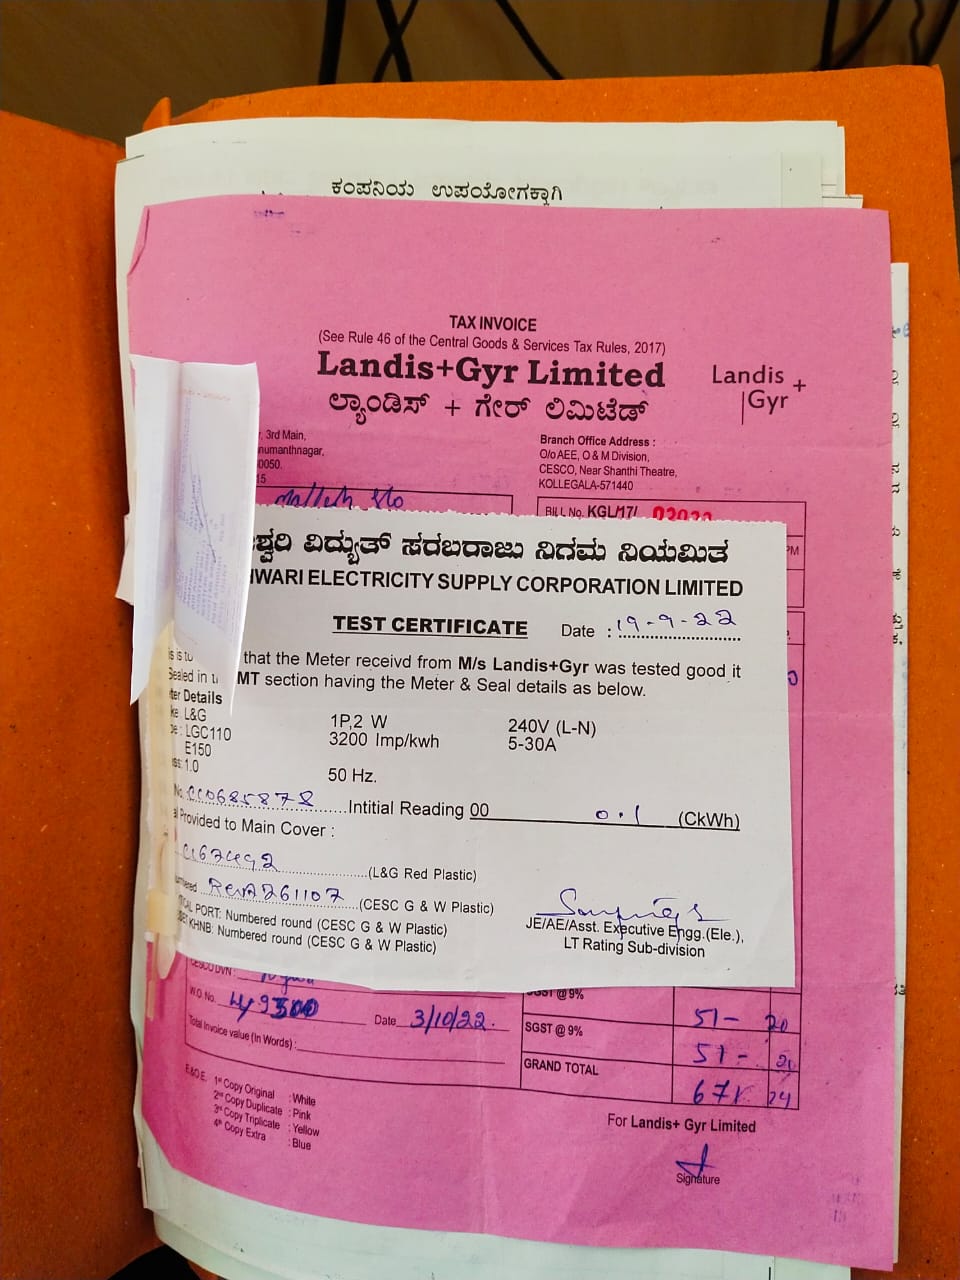 ಕಂಪನಿಯ ಉಪಯೋಗಕ್ಕಾಗಿ
TAX INVOICE
(See Rule 46 of the Central Goods & Services Tax Rules, 2017)
Landis+Gyr Limited
ಲ್ಯಾಂಡಿಸ್ + ಗೇರ್ ಲಿಮಿಟೆಡ್
Landis + Gyr
3rd Main,
numanthnagar,
0050.
15
Branch Office Address :
O/o AEE, O & M Division,
CESCO, Near Shanthi Theatre,
KOLLEGALA-571440
BILL No. KGL/17/
PM
ಶ್ವರಿ ವಿದ್ಯುತ್ ಸರಬರಾಜು ನಿಗಮ ನಿಯಮಿತ
WARI ELECTRICITY SUPPLY CORPORATION LIMITED
TEST CERTIFICATE
Date : 19-9-22
that the Meter receivd from M/s Landis+Gyr was tested good it
Sealed in MT section having the Meter & Seal details as below.
ter Details
ke L&G 1P,2 W 240V (L-N)
pe : LGC110 3200 Imp/kwh 5-30A
E150
ss: 1.0 50 Hz.
No. CC0685878 Intitial Reading 00 0.1 (CkWh)
al Provided to Main Cover :
(L&G Red Plastic)
umbered 261107 (CESC G & W Plastic)
ICAL PORT: Numbered round (CESC G & W Plastic)
KHNB: Numbered round (CESC G & W Plastic)
JE/AE/Asst. Executive Engg.(Ele.),
LT Rating Sub-division
CESCO DVN :
W.O No. Date 3/10/22.
Total Invoice value (In Words) :
@ 9% 51- 20
SGST @ 9% 51-
GRAND TOTAL 671 24
E.&O.E. 1st Copy Original : White
2nd Copy Duplicate : Pink
3rd Copy Triplicate : Yellow
4th Copy Extra : Blue
For Landis+ Gyr Limited
Signature